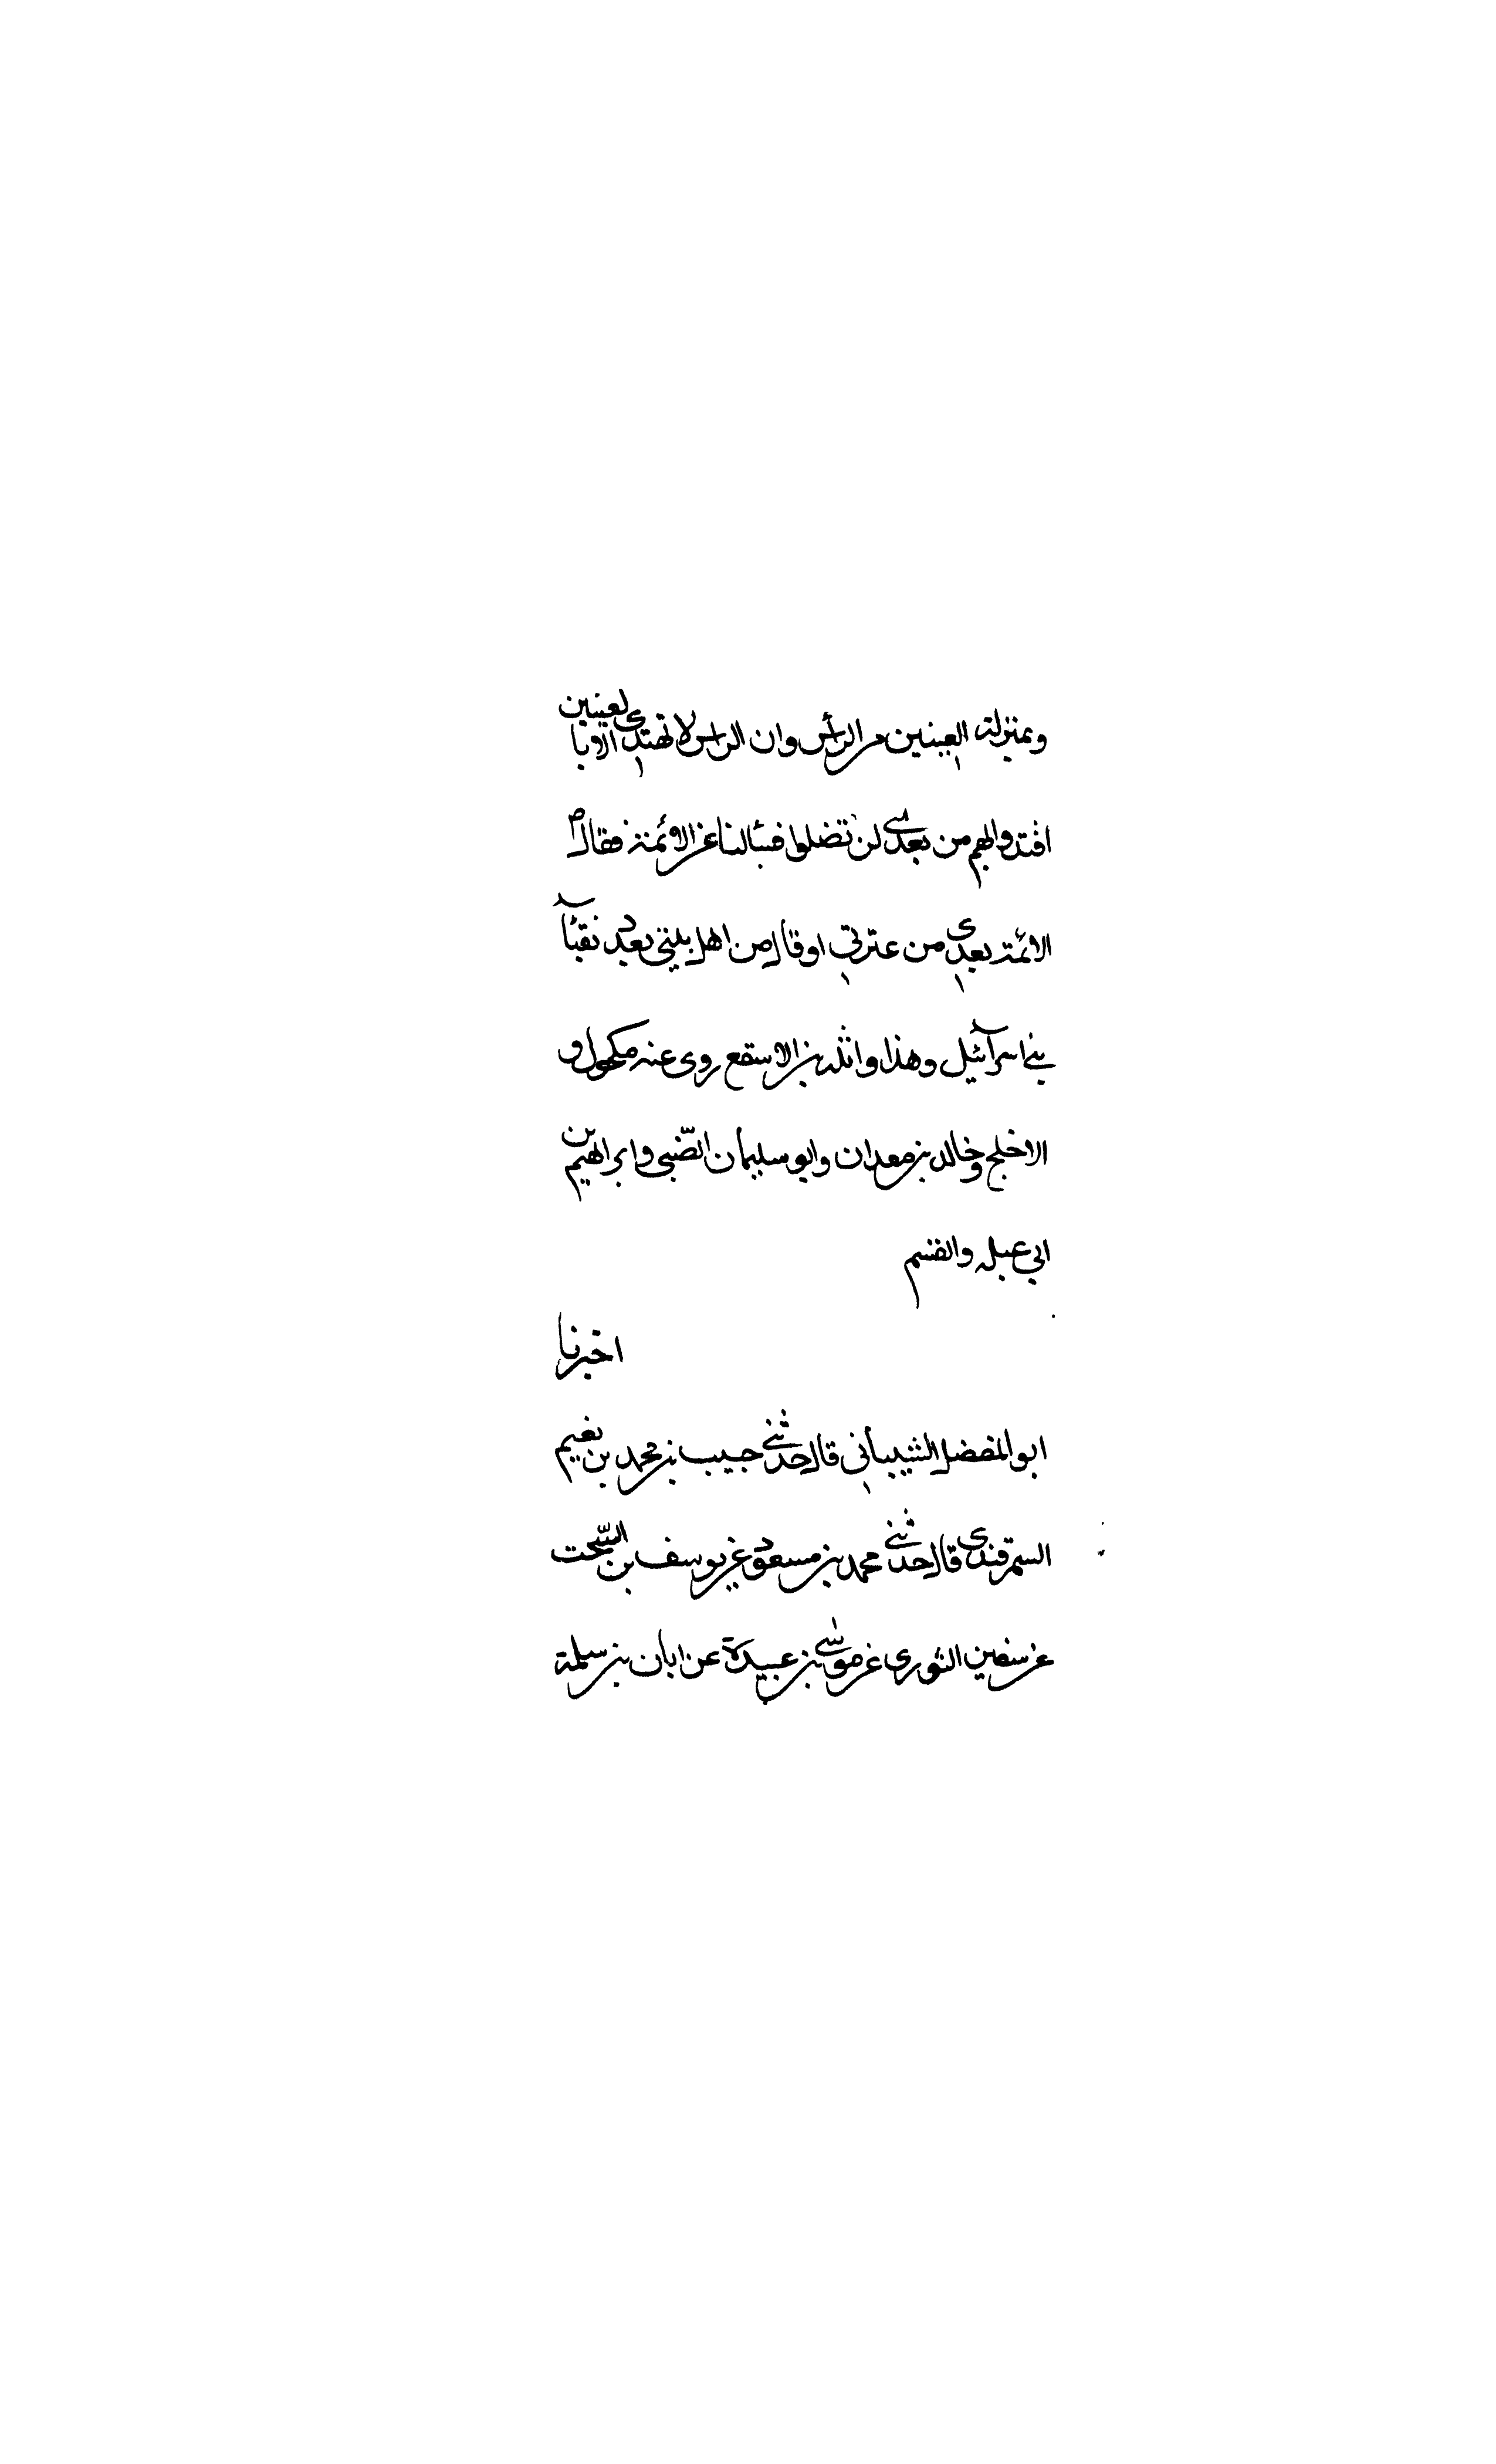 وبمنزلة العينين من الرأس وان الراس لا تهتدى الا بالعينين
اقتدوا بهم من بعدى لن تضلوا فسألنا عن الائمة فقال
الائمة بعدى من عترتي او قال من اهل بيتي بعدد نقباء
بني اسرآئيل وهذا واثلة بن الاسقع روى عنه مكحول و
الاخلج وخالد بن معدان وابو سليمان الضّبي وابراهيم بن
ابي عبله والقسم
اخبرنا
ابو المفضل الشيباني قال حدثني حبيب بن محمد بن نعيم
السمرقندى قال حدثني محمد بن مسعود عن يوسف بن السّخت
عن سفين الثورى عن موسى بن عبيدة عن ابان بن سلمة